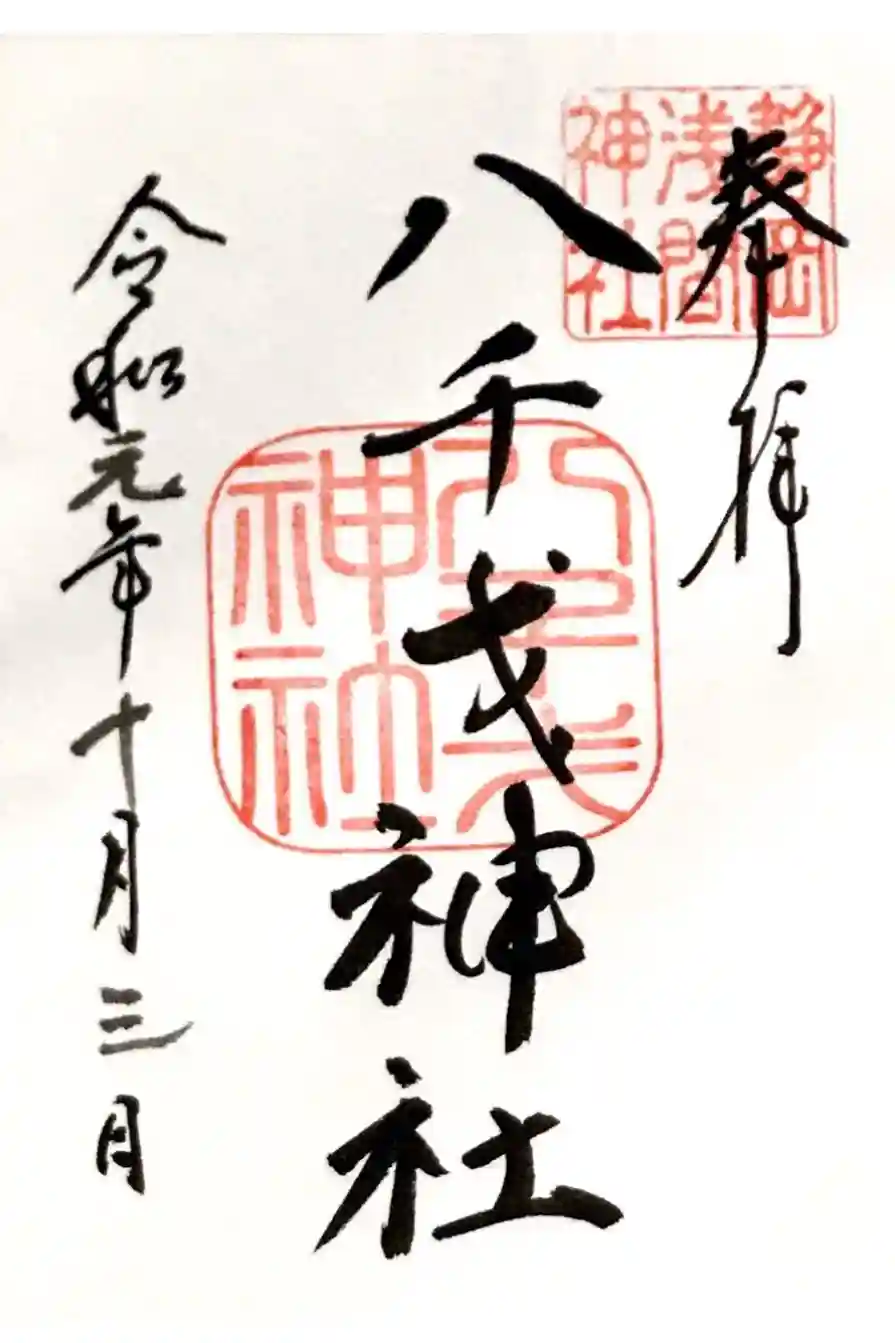 奉拝
静岡浅間神社
八千戈神社
八千戈神社
令和元年十月三日